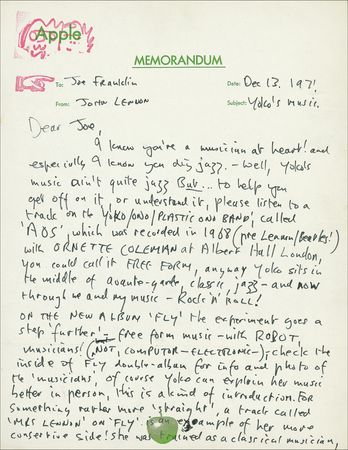 Apple
MEMORANDUM
To: Joe Franklin Date: Dec 13. 1971
From: John Lennon Subject: Yoko's music.
Dear Joe,
I know you're a musician at heart! and
especially I know you dig jazz. - well, Yoko's
music ain't quite jazz But... to help you
get off on it, or understand it, please listen to a
track on the YOKO/ONO/PLASTIC ONO BAND', called
'AOS', which was recorded in 1968 (pre Lennon/Beatles!)
with ORNETTE COLEMAN at Albert Hall London,
you could call it FREE FORM, anyway Yoko sits in
the middle of avante-garde, classic, jazz - and now
through me and my music - ROCK 'N' ROLL!
ON THE NEW ALBUM 'FLY' the experiment goes a
step 'further' - free form music - with ROBOT
musicians! (NOT, COMPUTER-ELECTRONIC-); check the
inside of FLY double-album for info and photo of
the 'musicians', of course Yoko can explain her music
better in person, this is a kind of introduction. FOR
something rather more 'straight', a track called
'MRS LENNON' on 'FLY' is an example of her more
consertive side! she was trained as a classical musician,